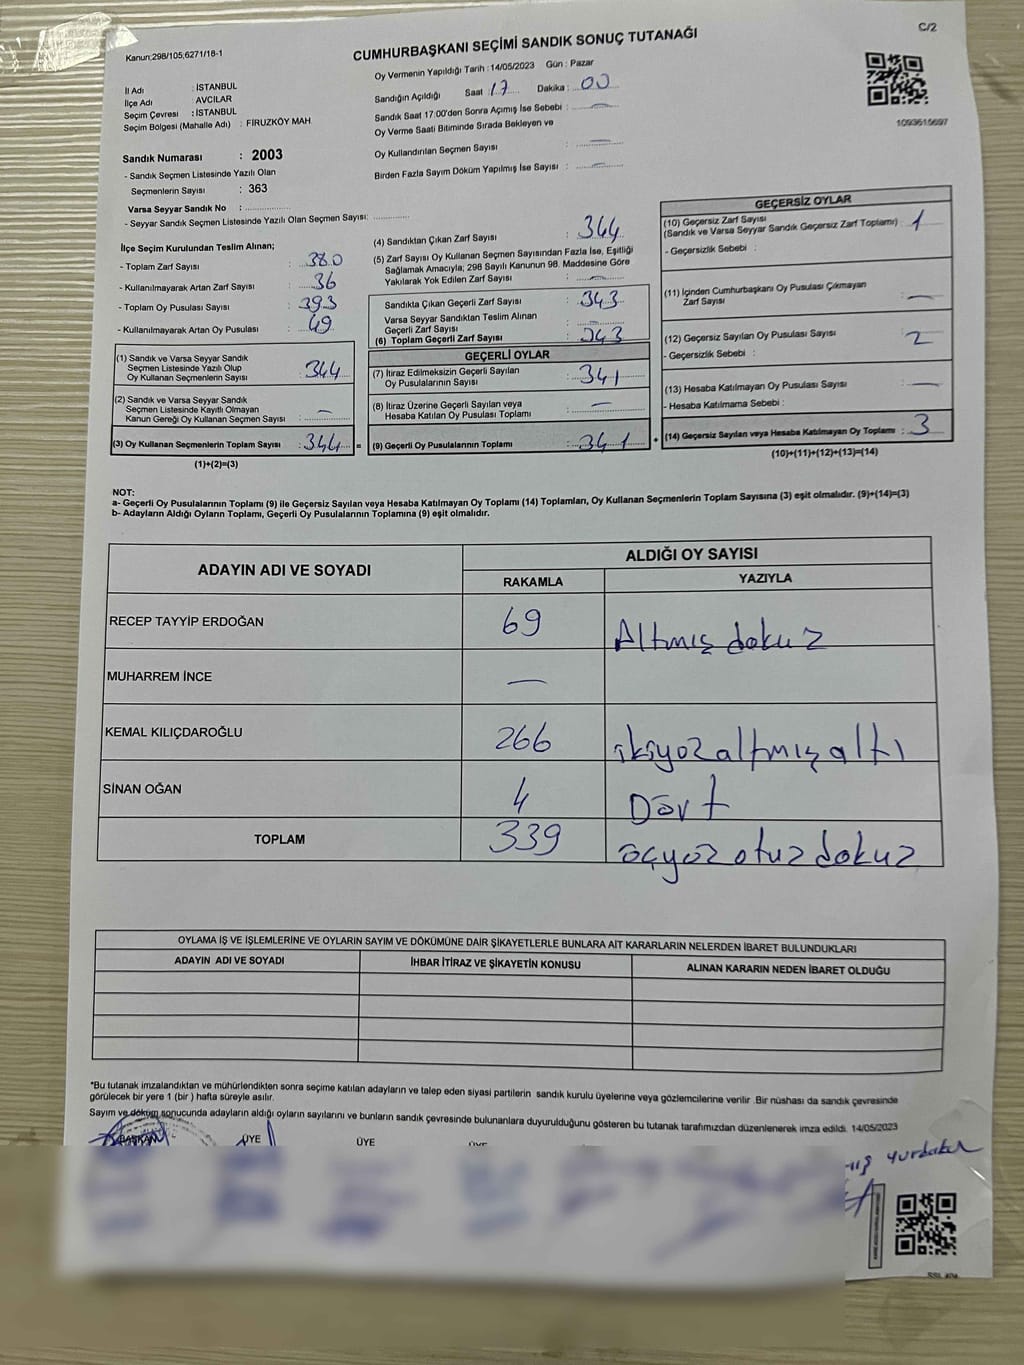 C/2
Kanun:298/105,6271/18-1
CUMHURBAŞKANI SEÇİMİ SANDIK SONUÇ TUTANAĞI
Oy Vermenin Yapıldığı Tarih :14/05/2023 Gün : Pazar
İl Adı : İSTANBUL
İlçe Adı : AVCILAR
Seçim Çevresi : İSTANBUL
Seçim Bölgesi (Mahalle Adı) : FİRUZKÖY MAH.
Sandığın Açıldığı Saat : 17 Dakika : 00
Sandık Saat 17:00'den Sonra Açılmış İse Sebebi : —
Oy Verme Saati Bitiminde Sırada Bekleyen ve
Oy Kullandırılan Seçmen Sayısı : —
Birden Fazla Sayım Döküm Yapılmış İse Sayısı : —
1093615697
Sandık Numarası : 2003
- Sandık Seçmen Listesinde Yazılı Olan
Seçmenlerin Sayısı : 363
Varsa Seyyar Sandık No :
- Seyyar Sandık Seçmen Listesinde Yazılı Olan Seçmen Sayısı:
İlçe Seçim Kurulundan Teslim Alınan;
- Toplam Zarf Sayısı : 380
- Kullanılmayarak Artan Zarf Sayısı : 36
- Toplam Oy Pusulası Sayısı : 393
- Kullanılmayarak Artan Oy Pusulası : 49
(1) Sandık ve Varsa Seyyar Sandık
Seçmen Listesinde Yazılı Olup
Oy Kullanan Seçmenlerin Sayısı : 344
(2) Sandık ve Varsa Seyyar Sandık
Seçmen Listesinde Kayıtlı Olmayan
Kanun Gereği Oy Kullanan Seçmen Sayısı : —
(3) Oy Kullanan Seçmenlerin Toplam Sayısı : 344 =
(1)+(2)=(3)
(4) Sandıktan Çıkan Zarf Sayısı : 344
(5) Zarf Sayısı Oy Kullanan Seçmen Sayısından Fazla İse, Eşitliği
Sağlamak Amacıyla; 298 Sayılı Kanunun 98. Maddesine Göre
Yakılarak Yok Edilen Zarf Sayısı : —
Sandıkta Çıkan Geçerli Zarf Sayısı : 343
Varsa Seyyar Sandıktan Teslim Alınan
Geçerli Zarf Sayısı : —
(6) Toplam Geçerli Zarf Sayısı : 343
GEÇERLİ OYLAR
(7) İtiraz Edilmeksizin Geçerli Sayılan
Oy Pusulalarının Sayısı : 341
(8) İtiraz Üzerine Geçerli Sayılan veya
Hesaba Katılan Oy Pusulası Toplamı : —
(9) Geçerli Oy Pusulalarının Toplamı : 341 +
GEÇERSİZ OYLAR
(10) Geçersiz Zarf Sayısı
(Sandık ve Varsa Seyyar Sandık Geçersiz Zarf Toplamı) : 1
- Geçersizlik Sebebi :
(11) İçinden Cumhurbaşkanı Oy Pusulası Çıkmayan
Zarf Sayısı : —
(12) Geçersiz Sayılan Oy Pusulası Sayısı : 2
- Geçersizlik Sebebi :
(13) Hesaba Katılmayan Oy Pusulası Sayısı : —
- Hesaba Katılmama Sebebi :
(14) Geçersiz Sayılan veya Hesaba Katılmayan Oy Toplamı : 3
(10)+(11)+(12)+(13)=(14)
NOT:
a- Geçerli Oy Pusulalarının Toplamı (9) ile Geçersiz Sayılan veya Hesaba Katılmayan Oy Toplamı (14) Toplamları, Oy Kullanan Seçmenlerin Toplam Sayısına (3) eşit olmalıdır. (9)+(14)=(3)
b- Adayların Aldığı Oyların Toplamı, Geçerli Oy Pusulalarının Toplamına (9) eşit olmalıdır.
ADAYIN ADI VE SOYADI
ALDIĞI OY SAYISI
RAKAMLA YAZIYLA
RECEP TAYYİP ERDOĞAN 69 Altmış dokuz
MUHARREM İNCE —
KEMAL KILIÇDAROĞLU 266 ikiyüzaltmışaltı
SİNAN OĞAN 4 Dört
TOPLAM 339 üçyüz otuz dokuz
OYLAMA İŞ VE İŞLEMLERİNE VE OYLARIN SAYIM VE DÖKÜMÜNE DAİR ŞİKAYETLERLE BUNLARA AİT KARARLARIN NELERDEN İBARET BULUNDUKLARI
ADAYIN ADI VE SOYADI İHBAR İTİRAZ VE ŞİKAYETİN KONUSU ALINAN KARARIN NEDEN İBARET OLDUĞU
*Bu tutanak imzalandıktan ve mühürlendikten sonra seçime katılan adayların ve talep eden siyasi partilerin sandık kurulu üyelerine veya gözlemcilerine verilir .Bir nüshası da sandık çevresinde
görülecek bir yere 1 (bir ) hafta süreyle asılır.
Sayım ve döküm sonucunda adayların aldığı oyların sayılarını ve bunların sandık çevresinde bulunanlara duyurulduğunu gösteren bu tutanak tarafımızdan düzenlenerek imza edildi. 14/05/2023
BAŞKAN ÜYE ÜYE ÜYE